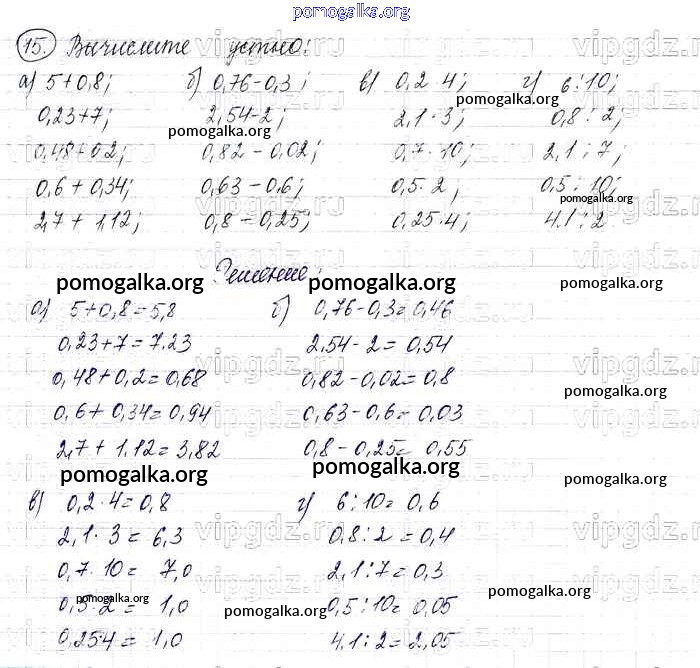 pomogalka.org
15. Вычислите устно:
а) 5+0,8; б) 0,76-0,3; в) 0,2·4; г) 6:10;
0,23+7; 2,54-2; 2,1·3; 0,8:2;
0,48+0,2; 0,82-0,02; 0,7·10; 2,1:7;
0,6+0,34; 0,63-0,6; 0,5·2; 0,5:10;
2,7+1,12; 0,8-0,25; 0,25·4; 4.1:2
Решение:
а) 5+0,8=5,8 б) 0,76-0,3=0,46
0,23+7=7.23 2,54-2=0,54
0,48+0,2=0,68 0,82-0,02=0,8
0,6+0,34=0,94 0,63-0,6=0,03
2,7+1.12=3,82 0,8-0,25=0,55
в) 0,2·4=0,8 г) 6:10=0,6
2,1·3=6,3 0,8:2=0,4
0,7·10=7,0 2,1:7=0,3
0,5·2=1,0 0,5:10=0,05
0,25·4=1,0 4.1:2=2,05